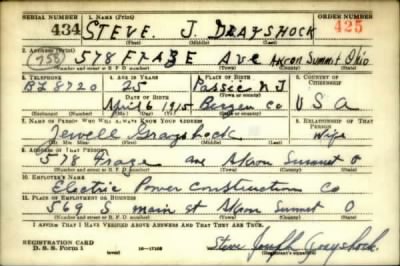 SERIAL NUMBER 1. NAME (Print) ORDER NUMBER
434 STEVE J. DRAYSHOCK 425
(First) (Middle) (Last)
2. ADDRESS (Print)
(758) 578 FRAZE Ave Akron Summit Ohio
(Number and street or R. F. D. number) (Town) (County) (State)
3. TELEPHONE 4. AGE IN YEARS 5. PLACE OF BIRTH 6. COUNTRY OF CITIZENSHIP
BL 8720 25 Passic N J
DATE OF BIRTH
April 6 1915 Bergen Co U S A
(Exchange) (Number) (Mo.) (Day) (Yr.) (State or country)
7. NAME OF PERSON WHO WILL ALWAYS KNOW YOUR ADDRESS 8. RELATIONSHIP OF THAT PERSON
Jewell Grayshock Wife
(Mr. Mrs. Miss) (First) (Middle) (Last)
9. ADDRESS OF THAT PERSON
578 Fraze ave Akron Summit O
(Number and street or R. F. D. number) (Town) (County) (State)
10. EMPLOYER'S NAME
Electric Power Construction Co
11. PLACE OF EMPLOYMENT OR BUSINESS
569 S main st Akron Summit O
(Number and street or R. F. D. number) (Town) (County) (State)
I AFFIRM THAT I HAVE VERIFIED ABOVE ANSWERS AND THAT THEY ARE TRUE.
REGISTRATION CARD
D. S. S. Form 1 Steve Joseph Grayshock
(Registrant's signature)